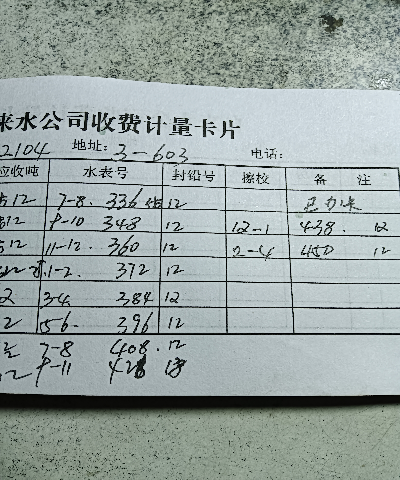 来水公司收费计量卡片
2104 地址: 3-603 电话:
应收吨 水表号 封铅号 擦校 备 注
12 7-8. 336 12
12 9-10 348 12 12-1 438. 12
12 11-12. 360 12 2-4 450 12
1-2. 372 12
2 3-4 384 12
2 5-6. 396 12
7-8 408. 12
12 9-11 42